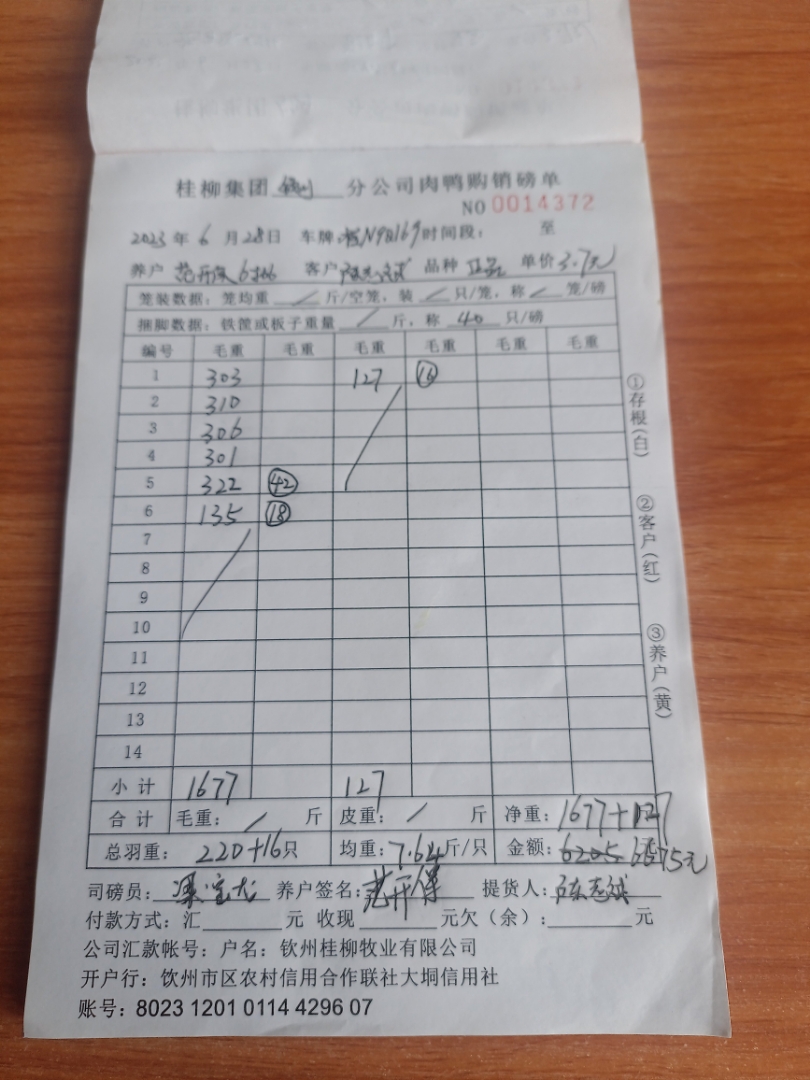 桂柳集团 钦州 分公司肉鸭购销磅单
NO 0014372
2023 年 6 月 28 日 车牌 桂N98169 时间段： 至
养户 范开保 客户 陈志斌 品种 单价 3.7元
笼装数据：笼均重 / 斤/空笼，装 / 只/笼，称 / 笼/磅
捆脚数据：铁筐或板子重量 / 斤，称 40 只/磅
编号 毛重 毛重 毛重 毛重 毛重 毛重
1 303 127 16
2 310
3 306
4 301
5 322 42
6 135 18
7
8
9
10
11
12
13
14
小计 1677 127
合计 毛重： / 斤 皮重： / 斤 净重：1677+127
总羽重： 220+16只 均重：7.64斤/只 金额：6205 6675元
司磅员： 养户签名：范开保 提货人：陈志斌
付款方式：汇 元 收现 元欠（余）： 元
公司汇款帐号：户名：钦州桂柳牧业有限公司
开户行：饮州市区农村信用合作联社大垌信用社
账号：8023 1201 0114 4296 07
①存根（白）
②客户（红）
③养户（黄）